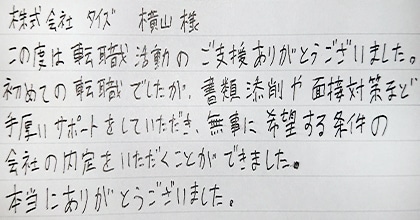 株式会社 タイズ 横山 様
この度は転職活動のご支援ありがとうございました。
初めての転職でしたが、書類添削や面接対策まど
手厚いサポートをしていただき、無事に希望する条件の
会社の内定をいただくことができました。
本当にありがとうございました。